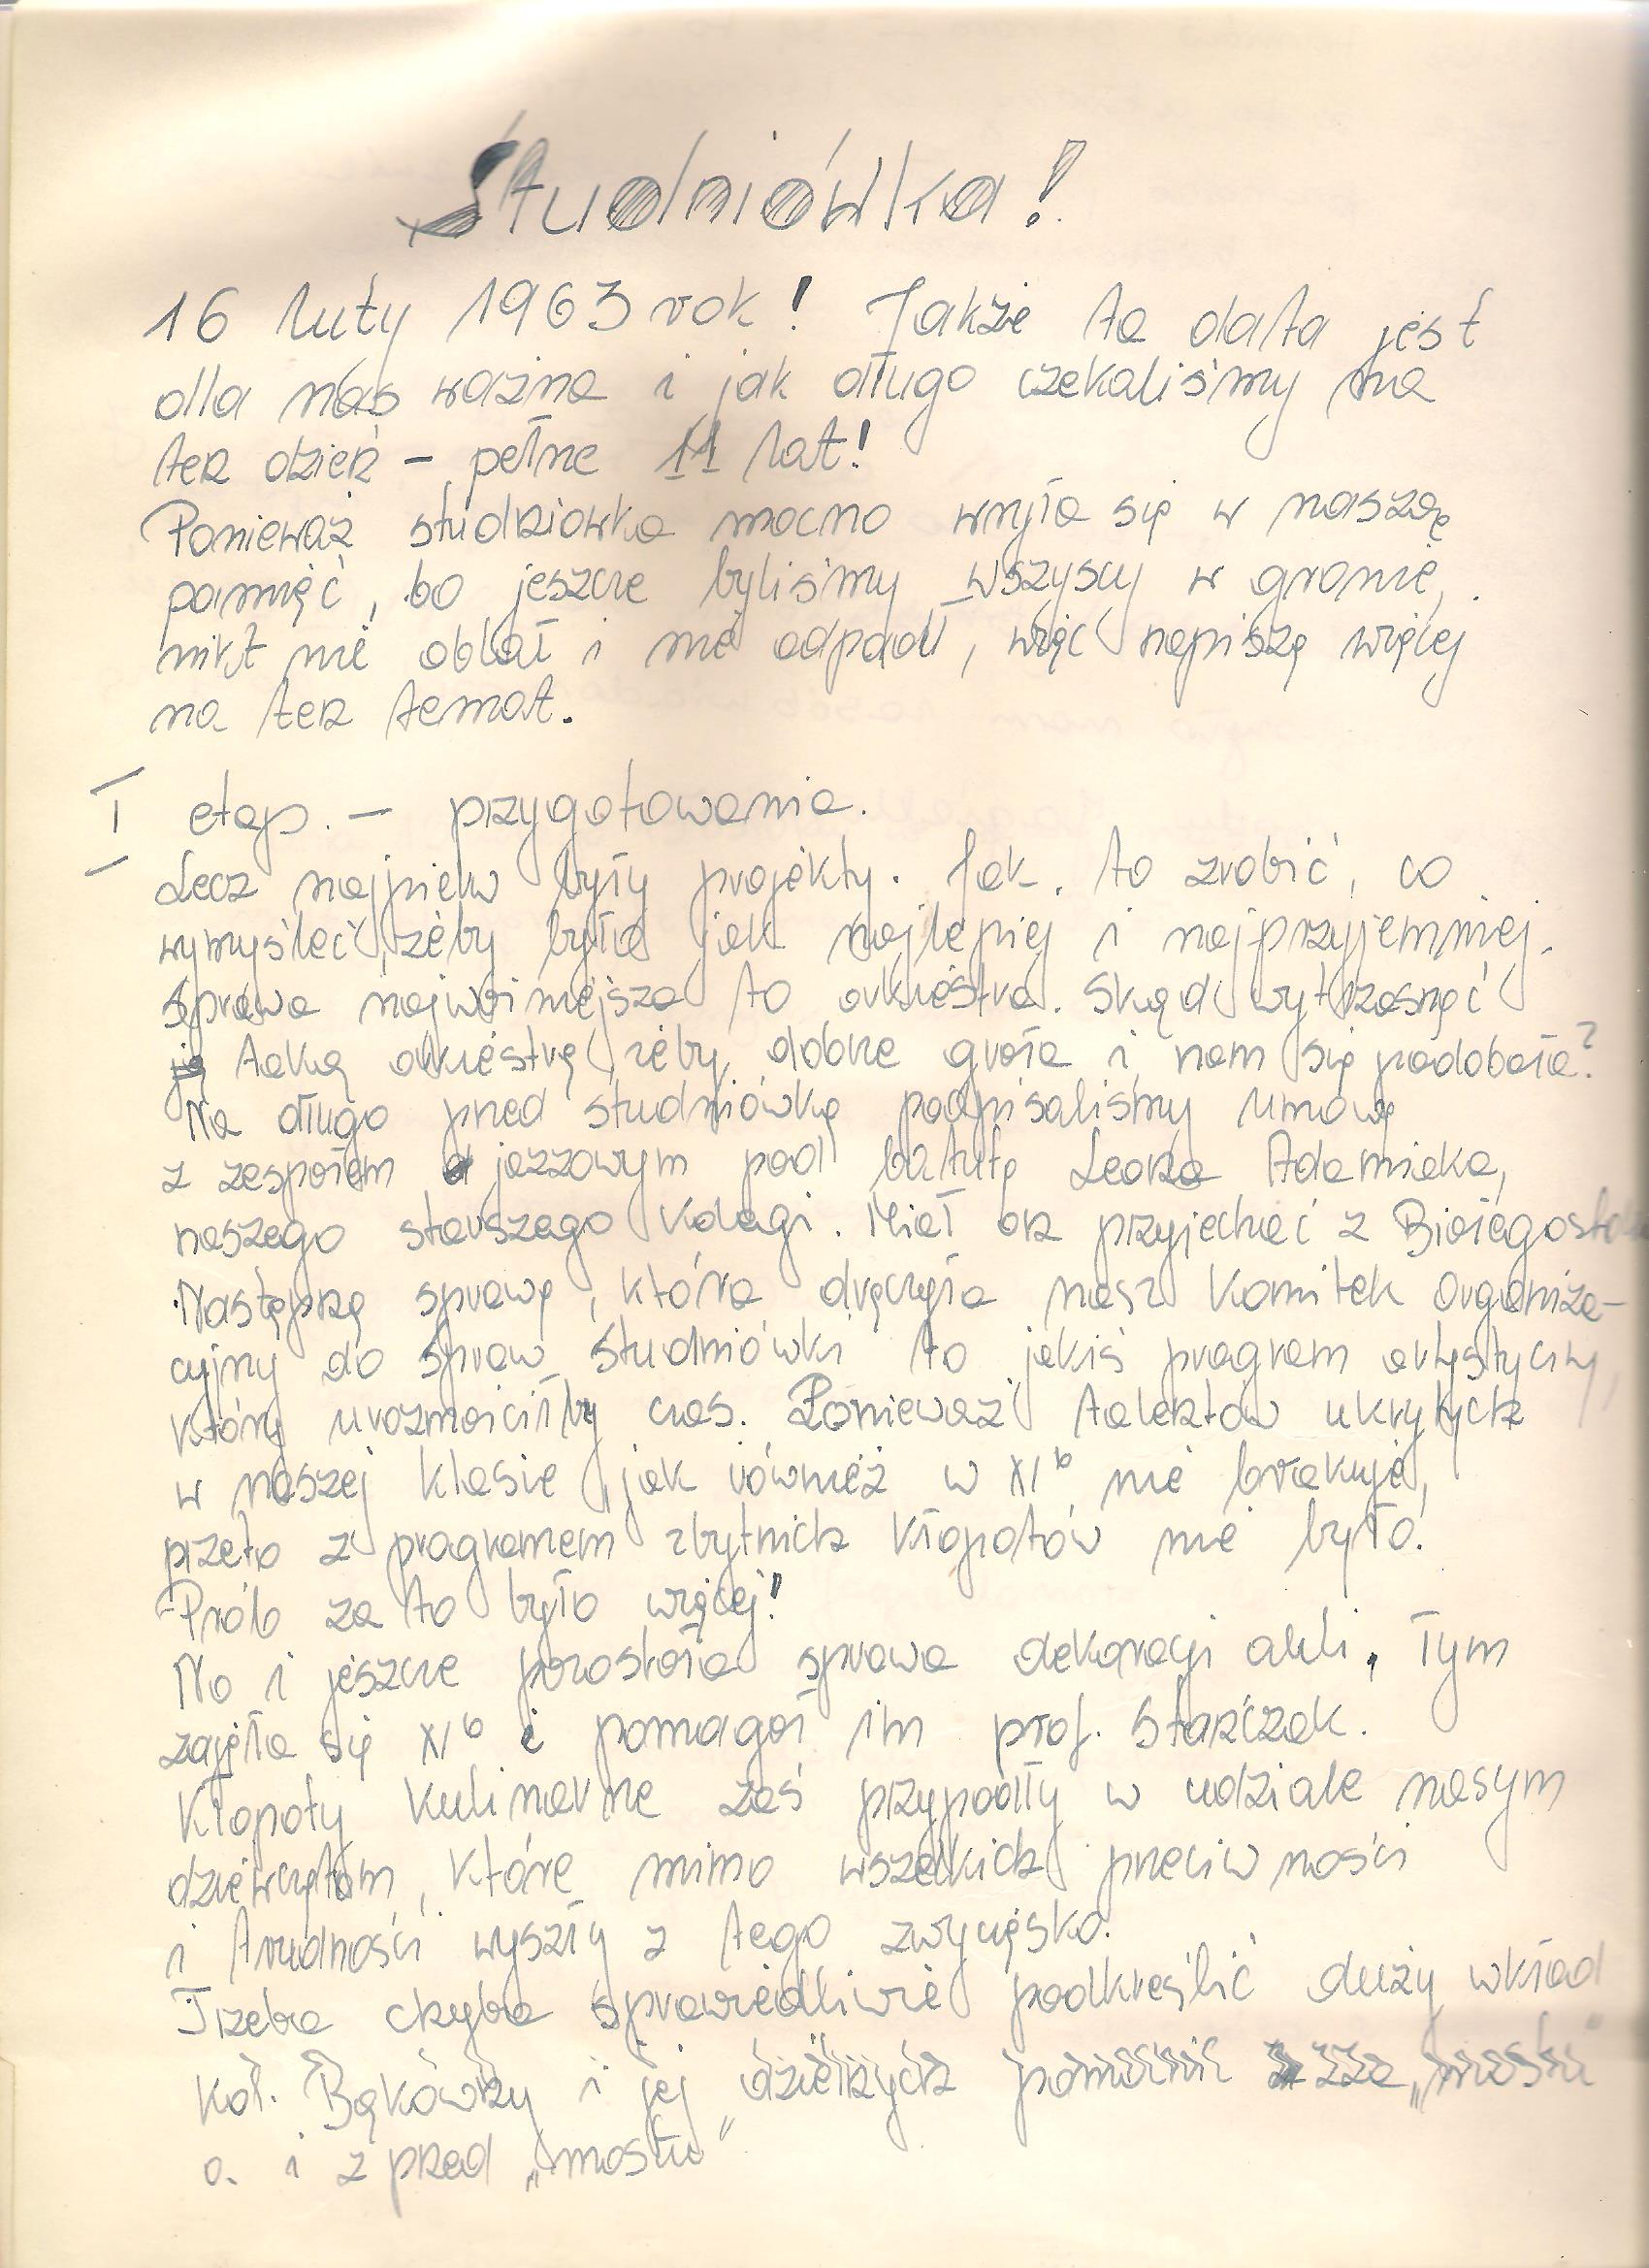 Studniówka!
16 luty 1963 rok! Jakże ta data jest
dla nas ważna i jak długo czekaliśmy na
ten dzień – pełne 11 lat!
Ponieważ studniówka mocno wryła się w naszą
pamięć, bo jeszcze byliśmy wszyscy w gronie,
nikt nie oblał i nie odpadł, więc napiszę więcej
na ten temat.
I etap. – przygotowania.
Lecz najpierw były projekty. Jak to zrobić, co
wymyśleć, żeby było jak najlepiej i najprzyjemniej.
Sprawa najważniejsza to orkiestra. Skąd wytrzasnąć
ją taką orkiestrę, żeby dobrze grała i nam się podobała?
Na długo przed studniówką podpisaliśmy umowę
z zespołem jazzowym pod batutą Leona Adamiaka,
naszego starszego kolegi. Miał on przyjechać z Białegostoku
Następną sprawą, która dręczyła nasz Komitek Organiza-
cyjny do spraw Studniówki to jakiś program artystyczny,
który urozmaiciłby czas. Ponieważ talentów ukrytych
w naszej klasie jak również w XIb nie brakuje,
przeto z programem zbytnich kłopotów nie było.
Prób za to było więcej!
No i jeszcze pozostała sprawa dekoracji auli. Tym
zajęła się XIb i pomagał im prof. Stańczak.
Kłopoty kulinarne zaś przypadły w udziale naszym
dziewczętom, które mimo wszelkich przeciwności
i trudności wyszły z tego zwycięsko.
Trzeba chyba sprawiedliwie podkreślić duży wkład
kol. Bąkówny i jej dzielnych pomocnic zza „mostu"
o. i z przed „mostu"